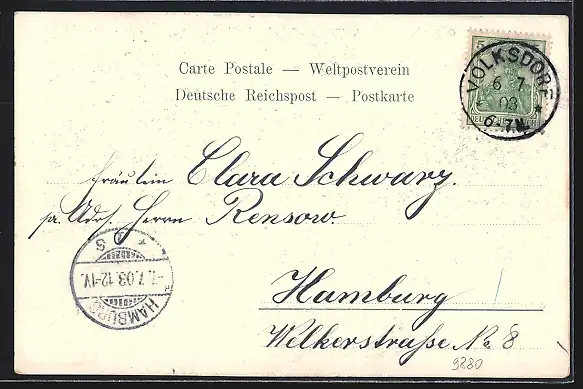 5 5
VOLKSDORF
6 7
03
* 6-7N. *
Carte Postale — Weltpostverein
Deutsche Reichspost — Postkarte
Fräulein Clara Schwarz.
pa. Adr. Herrn Rensow
* 1 S
7.7.03.12-1V.
HAMBURG
Hamburg
Welkerstraße No 8
9880